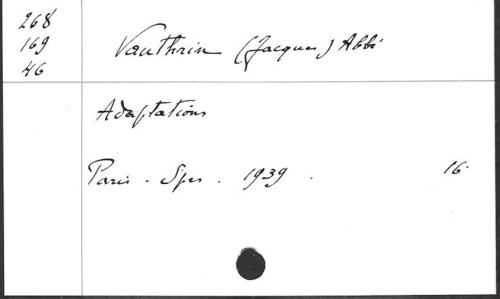 268
169
46
Vauthrin (Jacques) Abbé
Adaptations
Paris - Spes - 1939 - 16